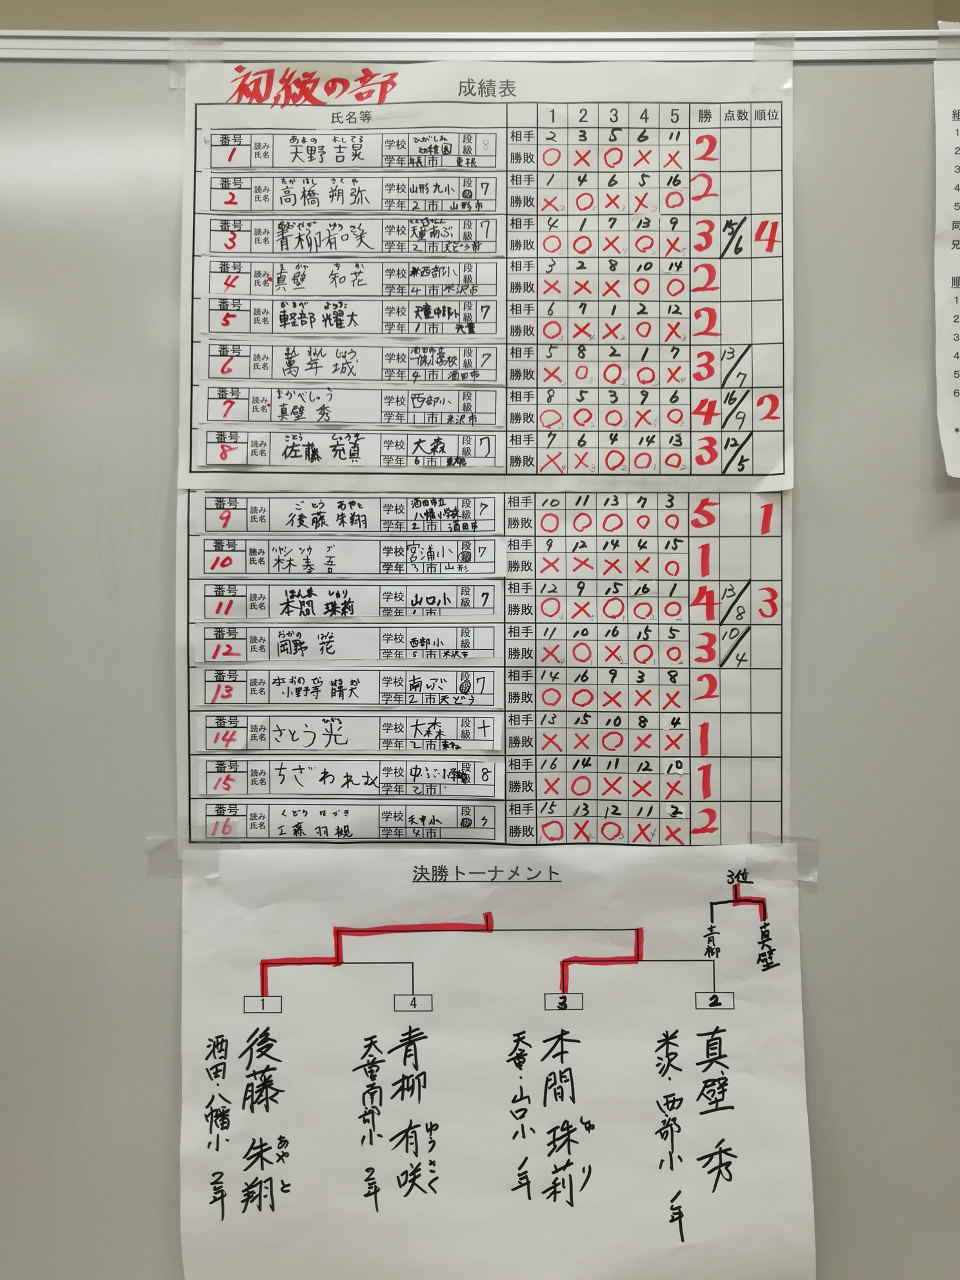 初級の部 成績表
氏名等 1 2 3 4 5 勝 点数 順位
番号 1 読み氏名 あまの よしてる 天野 吉晃 学校 ひがしね 幼稚園 段級 8 学年 年長 市 東根
相手 2 3 5 6 11
勝敗 ○ × ○ × × 2
番号 2 読み氏名 たかはし さくや 高橋 朔弥 学校 山形九小 段級 7 学年 2 市 山形市
相手 1 4 6 5 16
勝敗 × ○ × × ○ 2
番号 3 読み氏名 青柳有咲 学校 天童南ぶ 段級 7 学年 2 市
相手 4 1 7 13 9
勝敗 ○ ○ × ○ × 3 15/6 4
番号 4 読み氏名 まかべ ちか 真壁 知花 学校 西部小 段級 学年 4 市 米沢市
相手 3 2 8 10 14
勝敗 × × × ○ ○ 2
番号 5 読み氏名 かるべ ようた 軽部 耀太 学校 天童中部小 段級 7 学年 1 市 天童
相手 6 7 1 2 12
勝敗 ○ × × ○ × 2
番号 6 読み氏名 まんねん じょう 萬年 城 学校 酒田市立 段級 7 学年 4 市 酒田市
相手 5 8 2 1 7
勝敗 × ○ ○ ○ × 3 13/7
番号 7 読み氏名 まかべしゅう 真壁 秀 学校 西部小 段級 学年 1 市 米沢市
相手 8 5 3 9 6
勝敗 ○ ○ ○ × ○ 4 16/9 2
番号 8 読み氏名 佐藤 充真 学校 大森 段級 7 学年 6 市 東根
相手 7 6 4 14 13
勝敗 × × ○ ○ ○ 3 12/5
番号 9 読み氏名 ごとう あやと 後藤 朱翔 学校 酒田市立 八幡小学校 段級 7 学年 2 市 酒田市
相手 10 11 13 7 3
勝敗 ○ ○ ○ ○ ○ 5 1
番号 10 読み氏名 林 泰吾 学校 宮浦小 段級 7 学年 3 市 山形
相手 9 12 14 4 15
勝敗 × × × × ○ 1
番号 11 読み氏名 ほんま しゅり 本間 珠莉 学校 山口小 段級 7 学年 1 市
相手 12 9 15 16 1
勝敗 ○ × ○ ○ ○ 4 13/8 3
番号 12 読み氏名 おかの はな 岡野 花 学校 西部小 段級 学年 5 市 米沢市
相手 11 10 16 15 5
勝敗 × ○ × ○ ○ 3 10/4
番号 13 読み氏名 おのでら 小野寺 晴大 学校 南ぶ 段級 7 学年 2 市 天どう
相手 14 16 9 3 8
勝敗 ○ ○ × × × 2
番号 14 読み氏名 さとう光 学校 大森 段級 十 学年 2 市
相手 13 15 10 8 4
勝敗 × × ○ × × 1
番号 15 読み氏名 ちざわ 学校 段級 8 学年 2 市
相手 16 14 11 12 10
勝敗 × ○ × × × 1
番号 16 読み氏名 くどう はづき 工藤 羽槻 学校 天中小 段級 学年 4 市
相手 15 13 12 11 2
勝敗 ○ × ○ × × 2
決勝トーナメント
3位
青柳
真壁
1
4
3
2
後藤 朱翔 あやと
酒田・八幡小 2年
青柳 有咲 ゆうさく
天童南部小 2年
本間 珠莉 しゅり
天童・山口小 1年
真壁 秀
米沢・西部小 1年